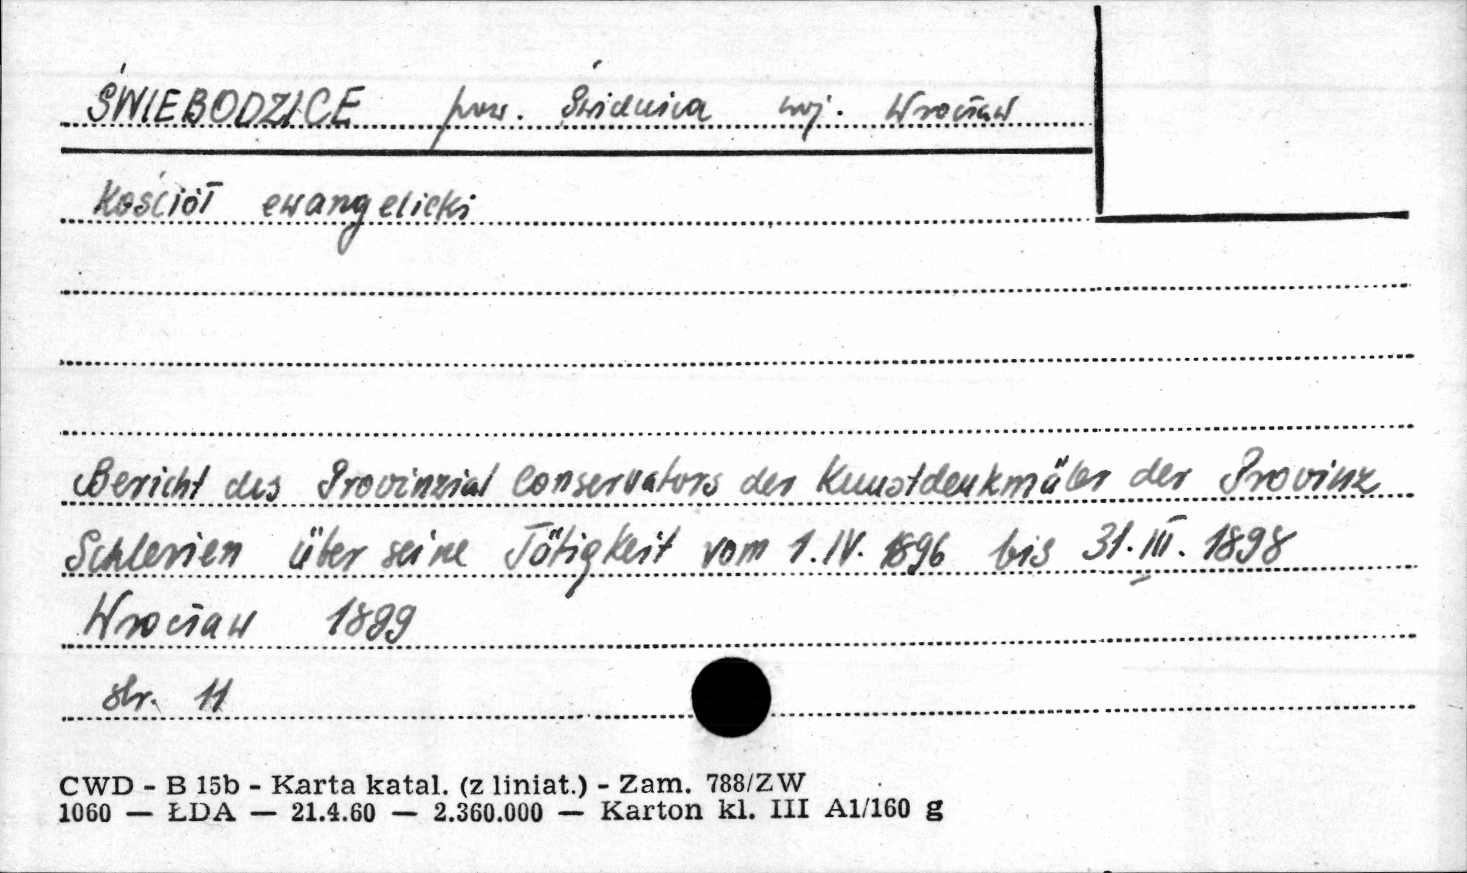 ŚWIEBODZICE pow. Świdnica woj. Wrocław
Kościół ewangelicki
Bericht des Provinzial Conservators der Kunstdenkmäler der Provinz
Schlesien über seine Tätigkeit vom 1.IV. 1896 bis 31.III. 1898
Wrocław 1899
str. 11
CWD - B 15b - Karta katal. (z liniat.) - Zam. 788/ZW
1060 — ŁDA — 21.4.60 — 2.360.000 — Karton kl. III A1/160 g